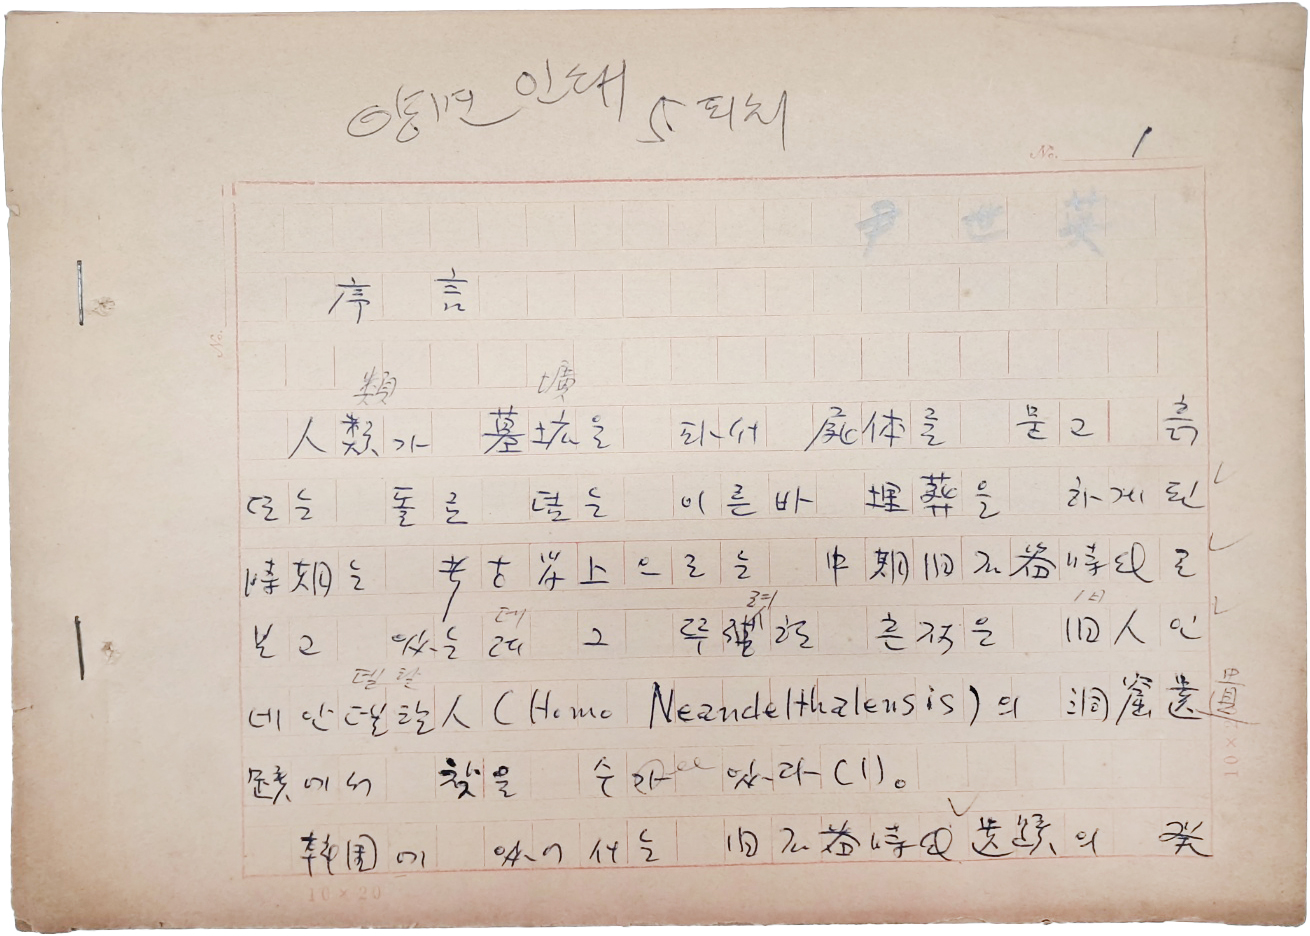 양면 인쇄 5 피치
No. 1
尹 世 英
序 言
類 壙
人類가 墓坑을 파서 屍体를 묻고 흙
또는 돌로 덮는 이른바 埋葬을 하게 된
時期는 考古學上으로는 中期旧石器時代로
데 렷 旧
보고 있는데 그 뚜렷한 흔적을 旧人인
델 탈
네안델탈人(Homo Neandelthalensis)의 洞窟遺
蹟에서 찾을 수가 있다(1)。
韓國에 있어서는 旧石器時代 遺蹟의 発
10×20